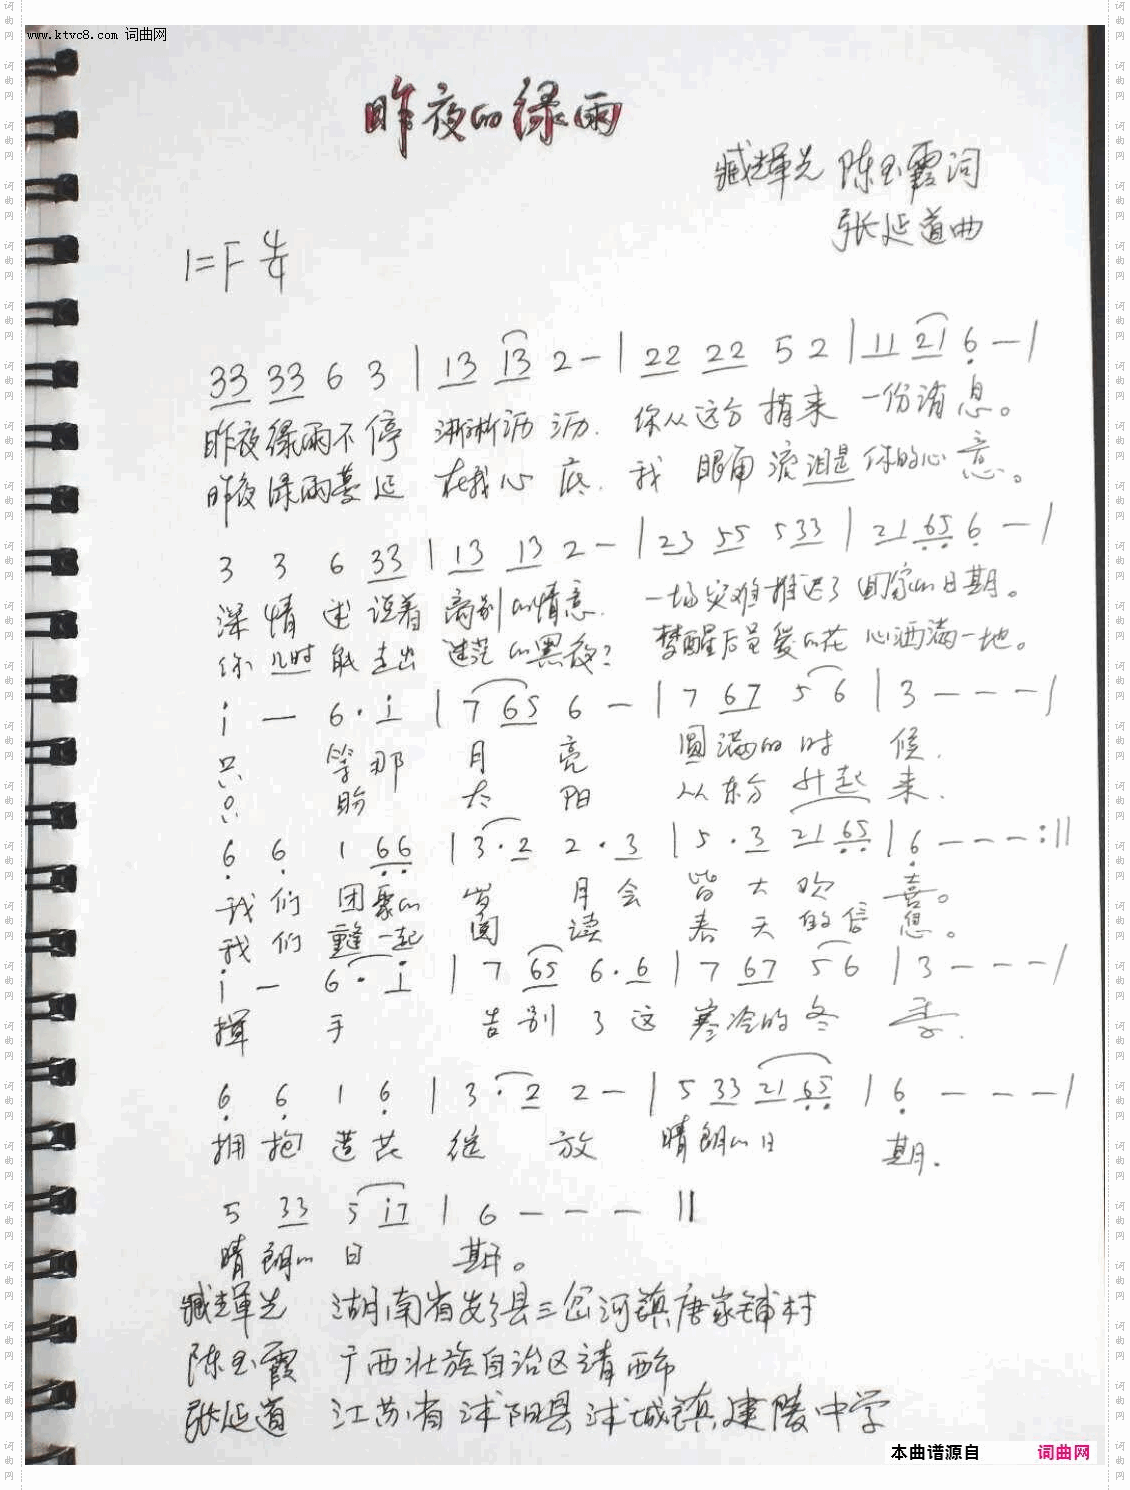 www.ktvc8.com 词曲网
昨夜的绿雨
臧辉光 陈玉霞词
张延道曲
1=F 4/4
33 33 6 3 | 13 13 2 - | 22 22 5 2 | 11 21 6 - |
昨夜绿雨不停 淅淅沥沥. 你从远方捎来 一份消息。
昨夜绿雨蔓延 在我心底. 我 眼角流泪是你的心意。
3 3 6 33 | 13 13 2 - | 23 55 5 33 | 21 65 6 - |
深情述说着 离别的情意. 一场灾难推迟了回家的日期。
你几时能走出 迷茫的黑夜? 梦醒后是爱的花 心洒满一地。
i - 6· i | 7 65 6 - | 7 67 5 6 | 3 - - - |
只 等那 月 亮 圆满的时 候.
只 盼 太 阳 从东方升起 来.
6 6 1 66 | 3· 2 2· 3 | 5· 3 21 65 | 6 - - - :||
我们 团聚的 岁 月会 皆大欢 喜。
我们 重逢一起 阅 读 春天的信 息。
i - 6· i | 7 65 6· 6 | 7 67 5 6 | 3 - - - |
挥 手 告别了这 寒冷的冬 季.
6 6 1 6 | 3· 2 2 - | 5 33 21 65 | 6 - - - |
拥抱 放 晴朗的日 期.
5 33 5 i7 | 6 - - - ||
晴朗的日 期。
臧辉光 湖南省 县三岔河镇唐家铺村
陈玉霞 广西壮族自治区靖西市
张延道 江苏省沭阳县沭城镇建陵中学
本曲谱源自 词曲网